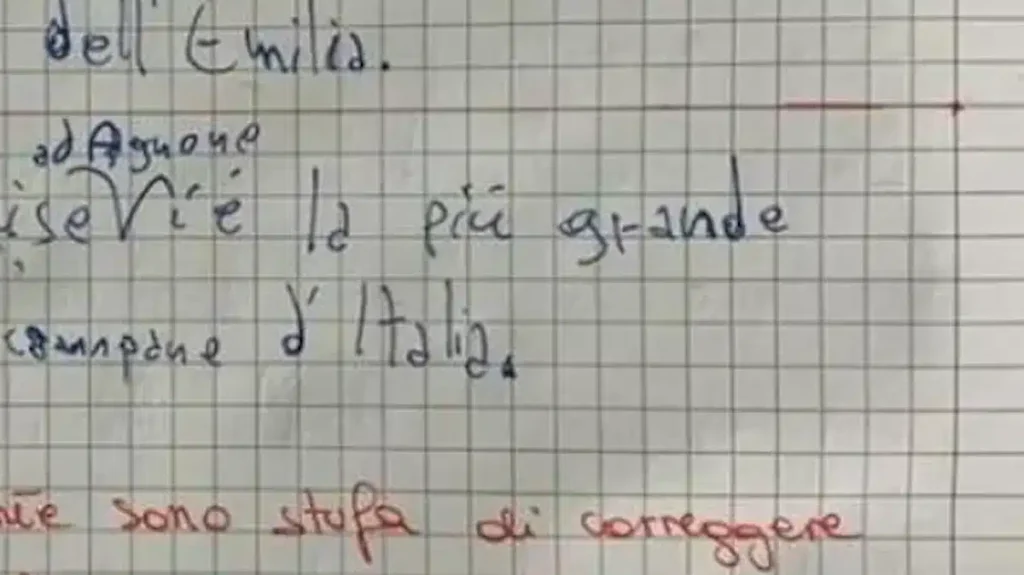 dell'Emilia.
ad Agnone
la più grande
campane d'Italia.
sono stufa di correggere